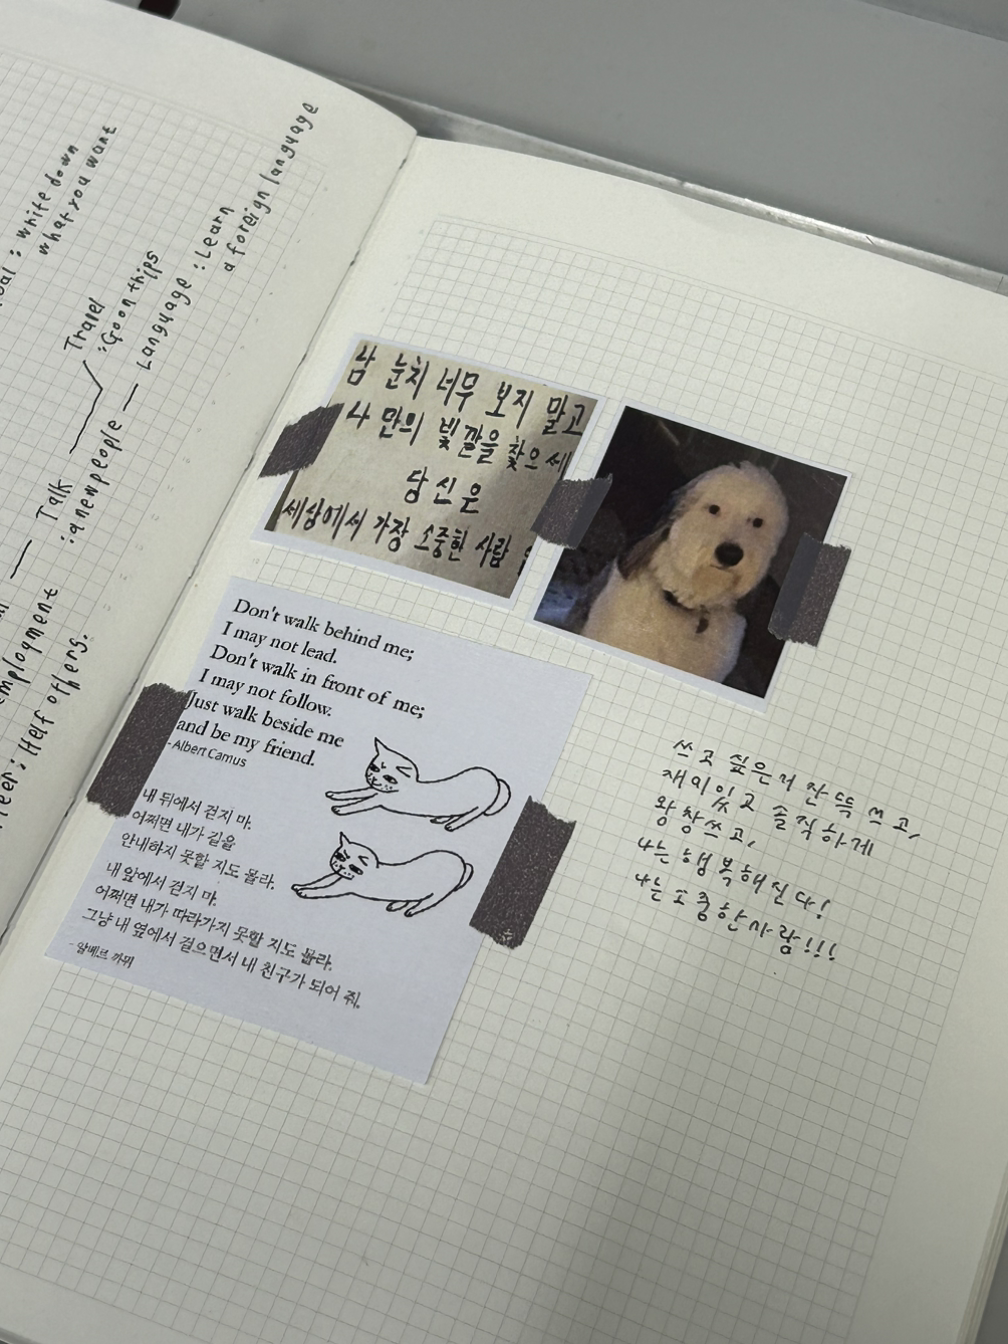 : write down
what you want
Travel
: Go on trips
Language : Learn
a foreign language
Talk
: a new people
employment
: Help others.
남 눈치 너무 보지 말고
나 만의 빛깔을 찾으세
당신은
세상에서 가장 소중한 사람
Don't walk behind me;
I may not lead.
Don't walk in front of me;
I may not follow.
Just walk beside me
and be my friend.
- Albert Camus
내 뒤에서 걷지 마.
어쩌면 내가 길을
안내하지 못할 지도 몰라.
내 앞에서 걷지 마.
어쩌면 내가 따라가지 못할 지도 몰라.
그냥 내 옆에서 걸으면서 내 친구가 되어 줘.
- 알베르 까뮈
쓰고 싶은거 잔뜩 쓰고,
재미있고 솔직하게
왕창쓰고,
나는 행복해진다!
나는 소중한사람!!!